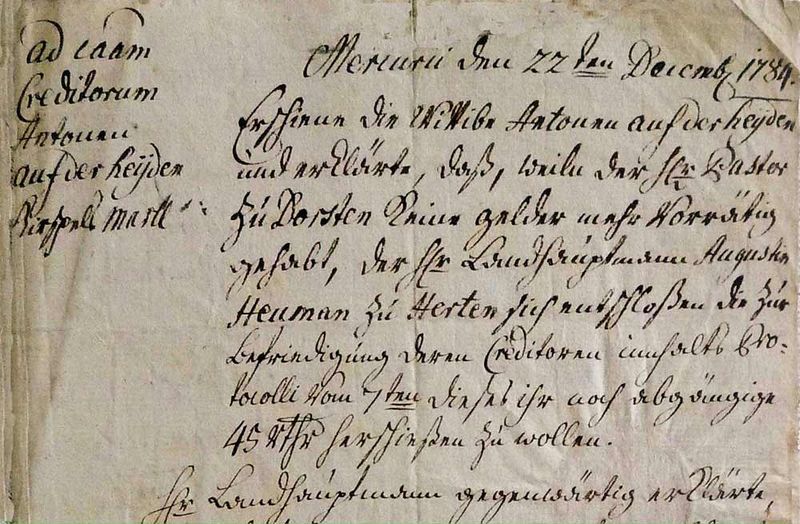 ad caam
Creditorum
Antonen
auf der heijden
Kirspels Marll
Mercurii den 22ten Decemb. 1784.
Erschiene die Wittibe Antonen auf der heijden
und erklärte, daß, weiln der hr Pastor
zu Dorsten keine gelder mehr vorrätig
gehabt, der hr Landhauptmann Augustin
Heuman zu Herten sich entschloßen die zur
befriedigung deren Creditoren innhalts Pro-
tocolli vom 7ten dieses ihr noch abgängige
45 rthr herschießen zu wollen.
hr Landhauptmann gegenwärtig erklärte,